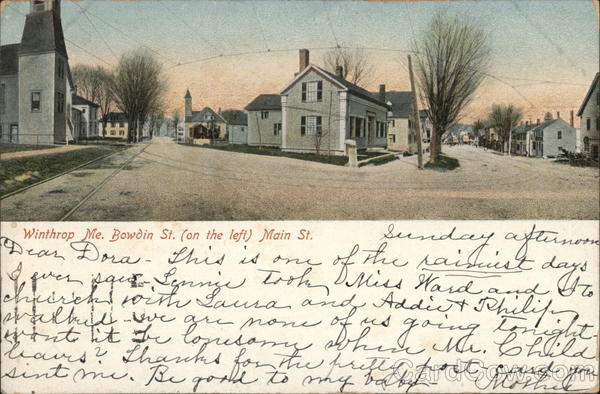 Winthrop Me. Bowdin St. (on the left) Main St.
Sunday afternoon
Dear Dora - This is one of the rainiest days
I ever saw. Lennie took Miss Ward and I to
church with Laura and Addie & Philip
walked. we are none of us going tonight
wont it be lonesome when Mr. Child
leavs? Thanks for the pretty post card you
sint me. Be good to my baby. Mother
CardCow.com